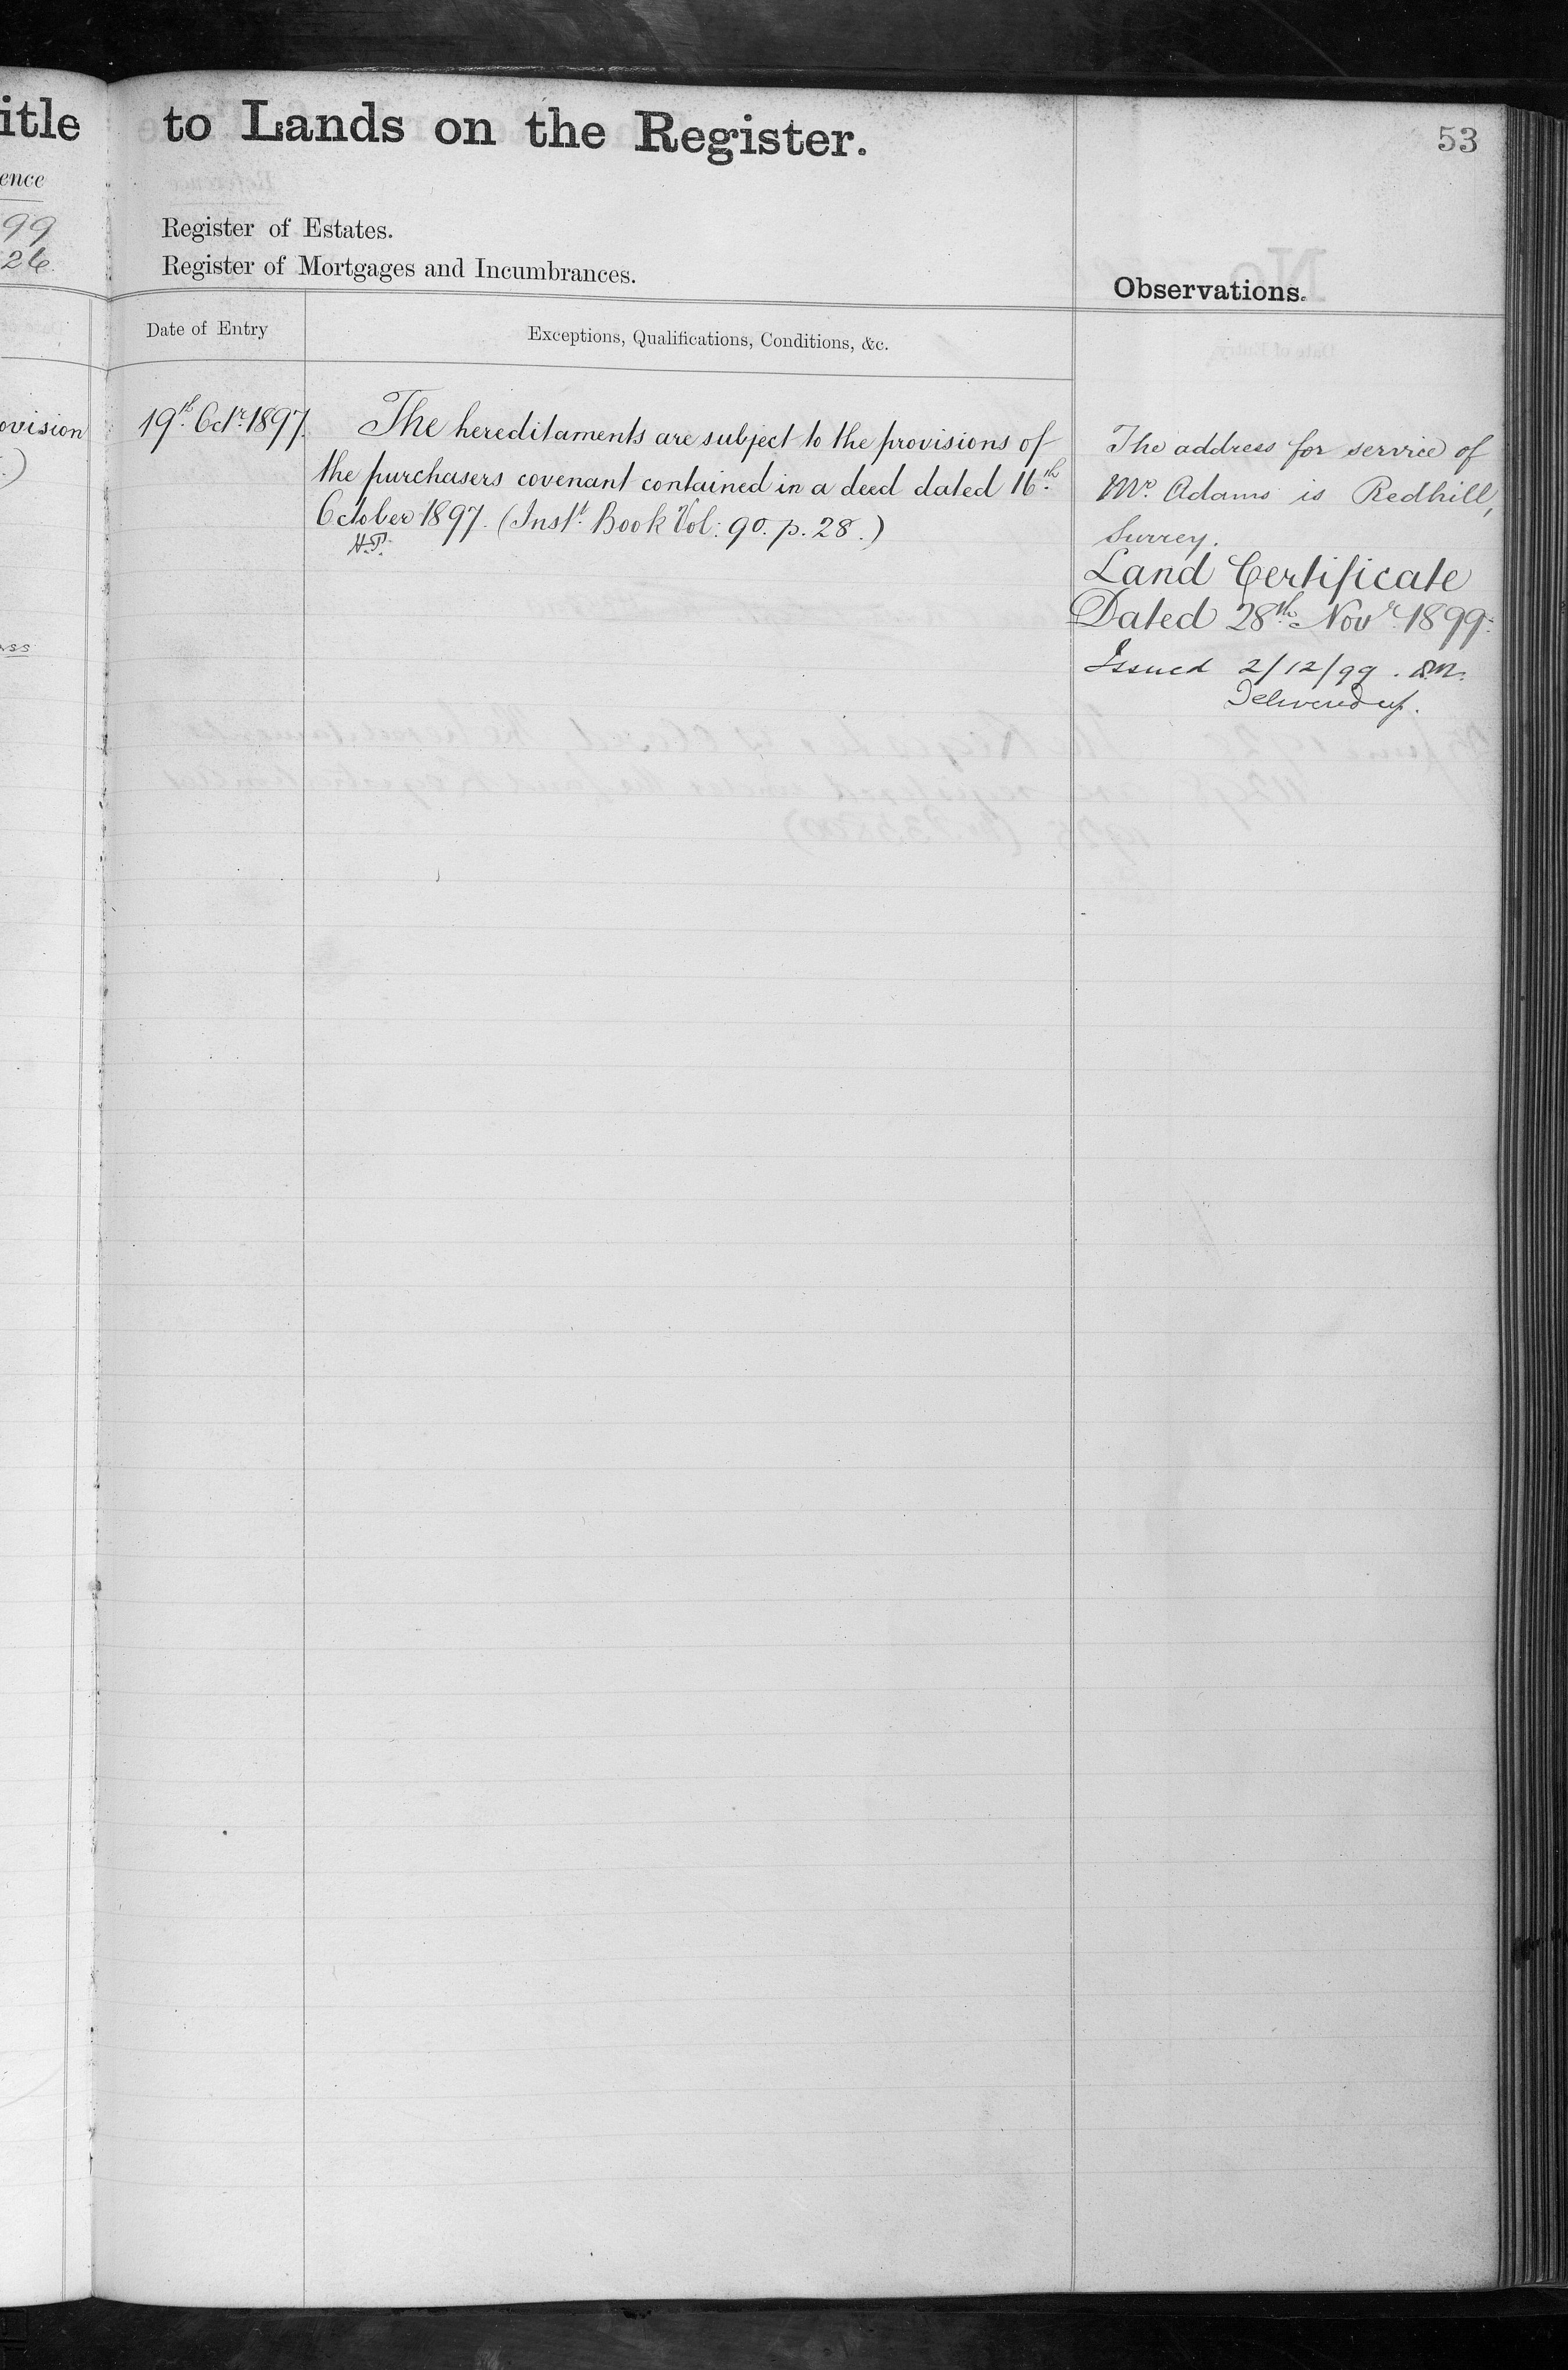 itle
ence
99
26.
ovision
.)
to Lands on the Register.
53
Register of Estates.
Register of Mortgages and Incumbrances.
Observations.
Date of Entry
Exceptions, Qualifications, Conditions, &c.
19th. Octr. 1897.
The hereditaments are subject to the provisions of
the purchasers covenant contained in a deed dated 16th.
October 1897. (Inst. Book Vol: 90. p. 28.)
H.P.
The address for service of
Mr. Adams is Redhill,
Surrey.
Land Certificate
Dated 28th. Novr. 1899.
Issued 2/12/99.
Delivered up.